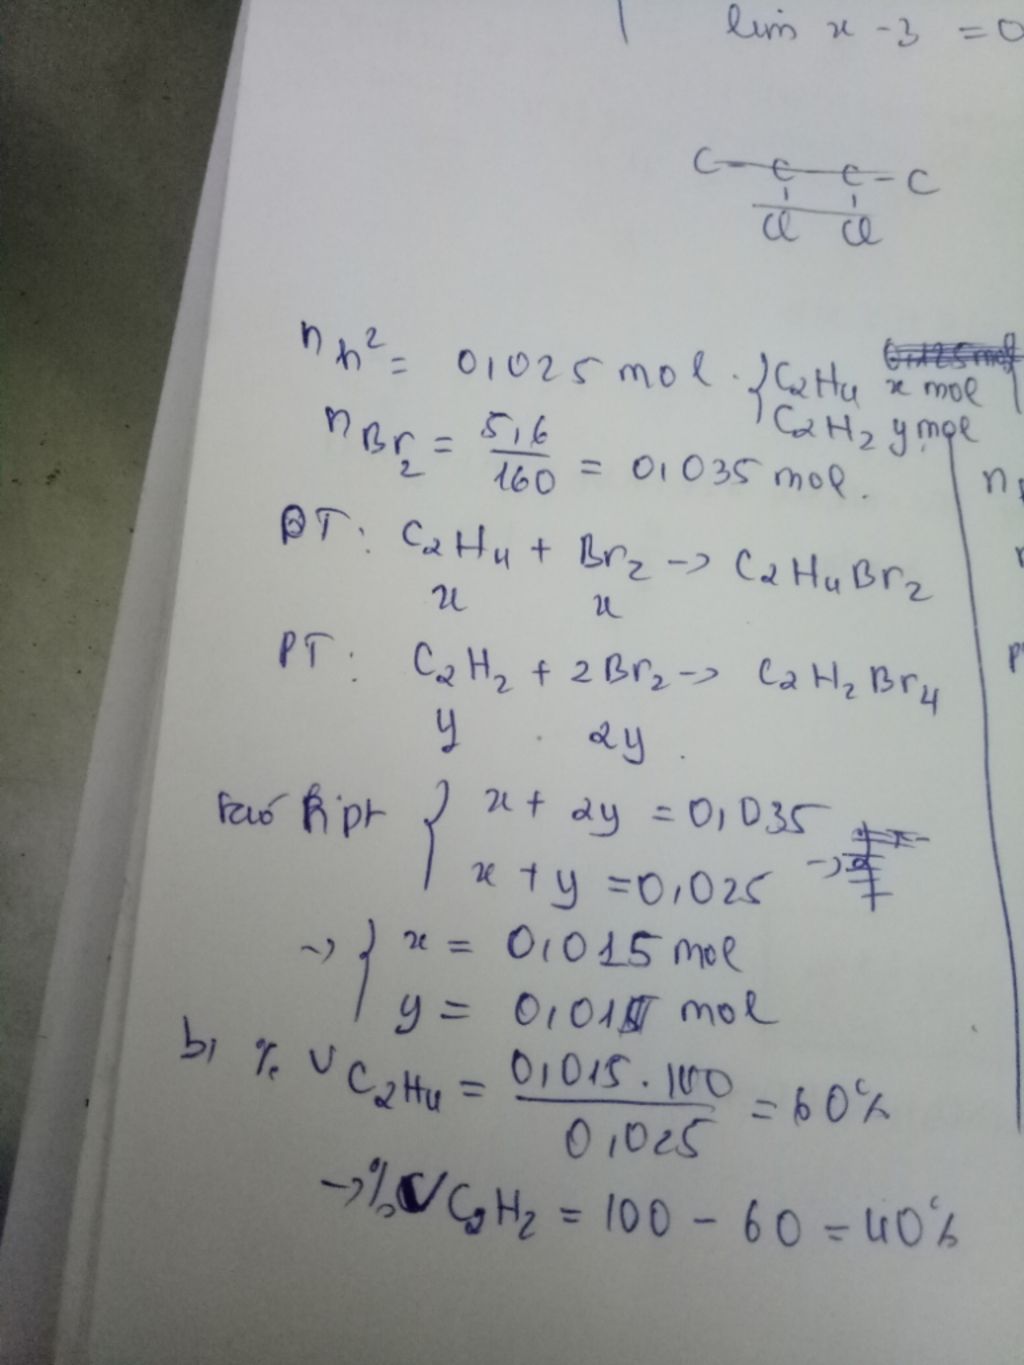 lim x - 3 = 0
C - C - C - C
Cl Cl
n h² = 0,025 mol. { C2H4 x mol
C2H2 y mol
nBr2 = 5,6/160 = 0,035 mol.
PT: C2H4 + Br2 -> C2H4Br2
x x
PT: C2H2 + 2Br2 -> C2H2Br4
y 2y
hpt { x + 2y = 0,035
x + y = 0,025 ->
-> { x = 0,015 mol
y = 0,01 mol
b, % V C2H4 = 0,015.100/0,025 = 60%
-> % V C2H2 = 100 - 60 = 40%